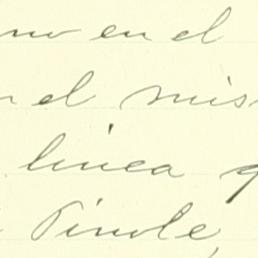 no en el
n el mis
linea q
Pinole,